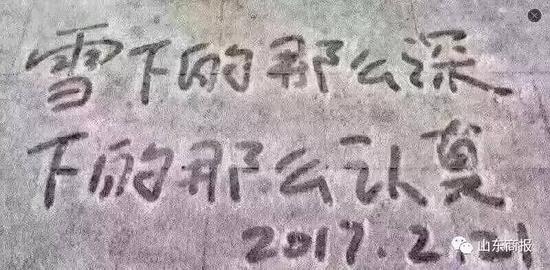 雪下的那么深
下的那么认真
2017.2.21
山东商报